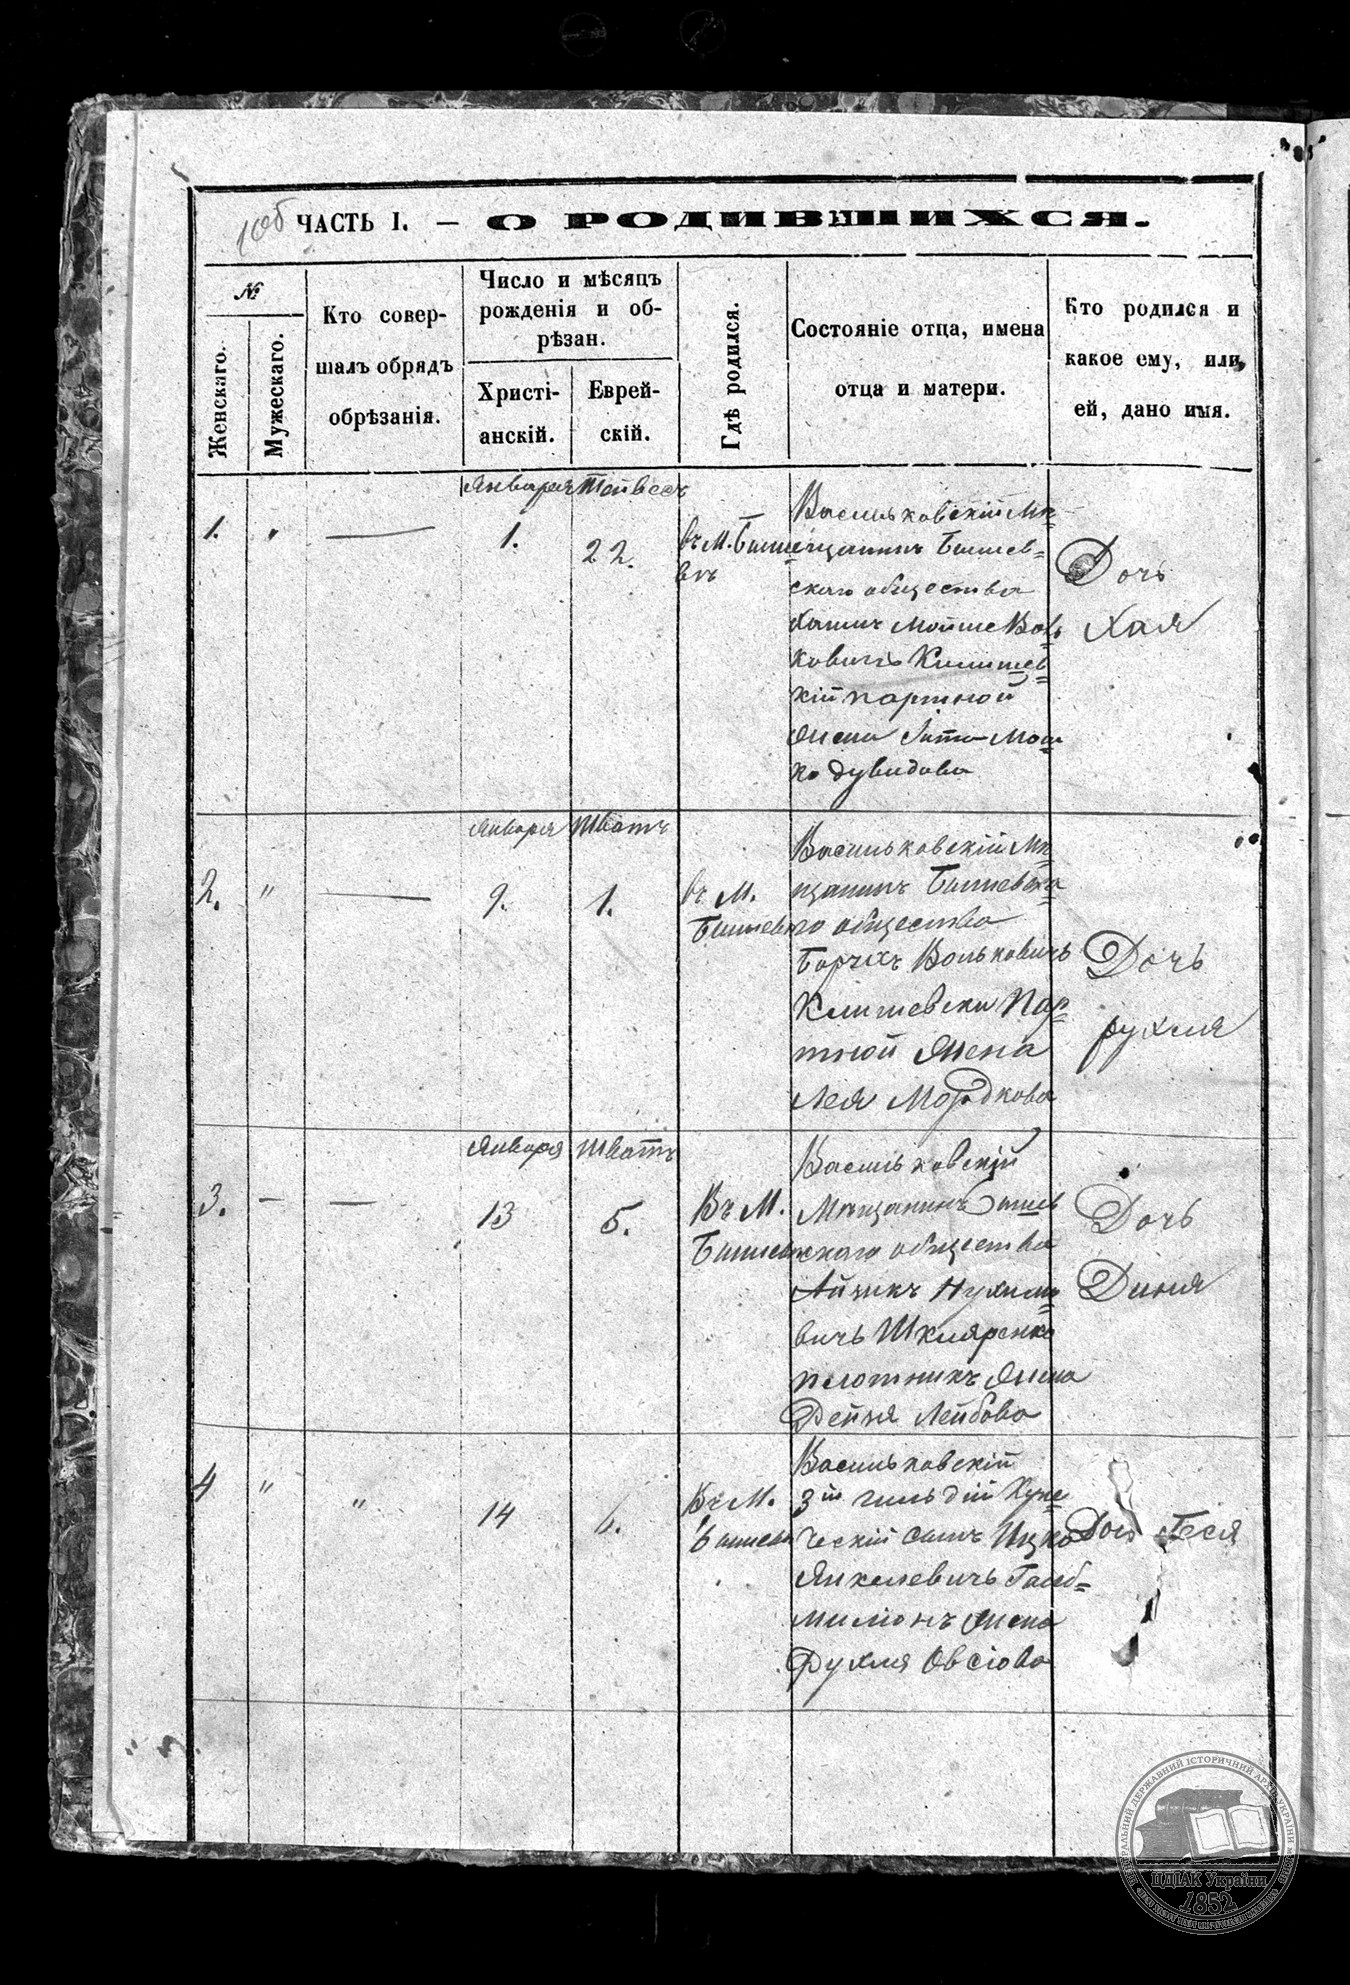 10об
ЧАСТЬ I. — О РОДИВШИХСЯ.
№
Женскаго.
Мужескаго.
Кто совер-
шалъ обрядъ
обрѣзанія.
Число и мѣсяцъ
рожденія и об-
рѣзан.
Христі-
анскій.
Еврей-
скій.
Гдѣ родился.
Состояніе отца, имена
отца и матери.
Кто родился и
какое ему, или,
ей, дано имя.
Января Тейвесъ
1. " — 1. 22.
въ М. Бышe
вѣ
Васильковскій Мѣ-
щанинъ Бышев-
скаго общества
Мойше Воль-
ковичъ
кій портной
жена Мош-
ко Дувидова
Дочь
Хая
Января Шватъ
2. " — 9. 1.
въ М.
Бышевѣ
Васильковскій Мѣ-
щанинъ Бышевска-
го общества
Борухъ Вольковичъ
Клишевски Пор-
тной Жена
Лея Мордкова
Дочь
рухля
Января Шватъ
3. — — 13 5.
Въ М.
Бышевѣ
Васильковскій
Мѣщанинъ Бышев
скаго общества
Айзикъ Нухимо-
вичъ Шкляренко
плотникъ Жена
Лейбова
Дочь
Диня
4 " " 14 6.
Въ М.
Бышевѣ
Васильковскій
3й гильдій Купе-
ческій сынъ Ицко
Янкелевичъ Гольб-
миліонъ жена
Рухля Овсіова
Дочь Беся
ЦЕНТРАЛЬНИЙ ДЕРЖАВНИЙ ІСТОРИЧНИЙ АРХІВ УКРАЇНИ
ЦДІАК України
1852